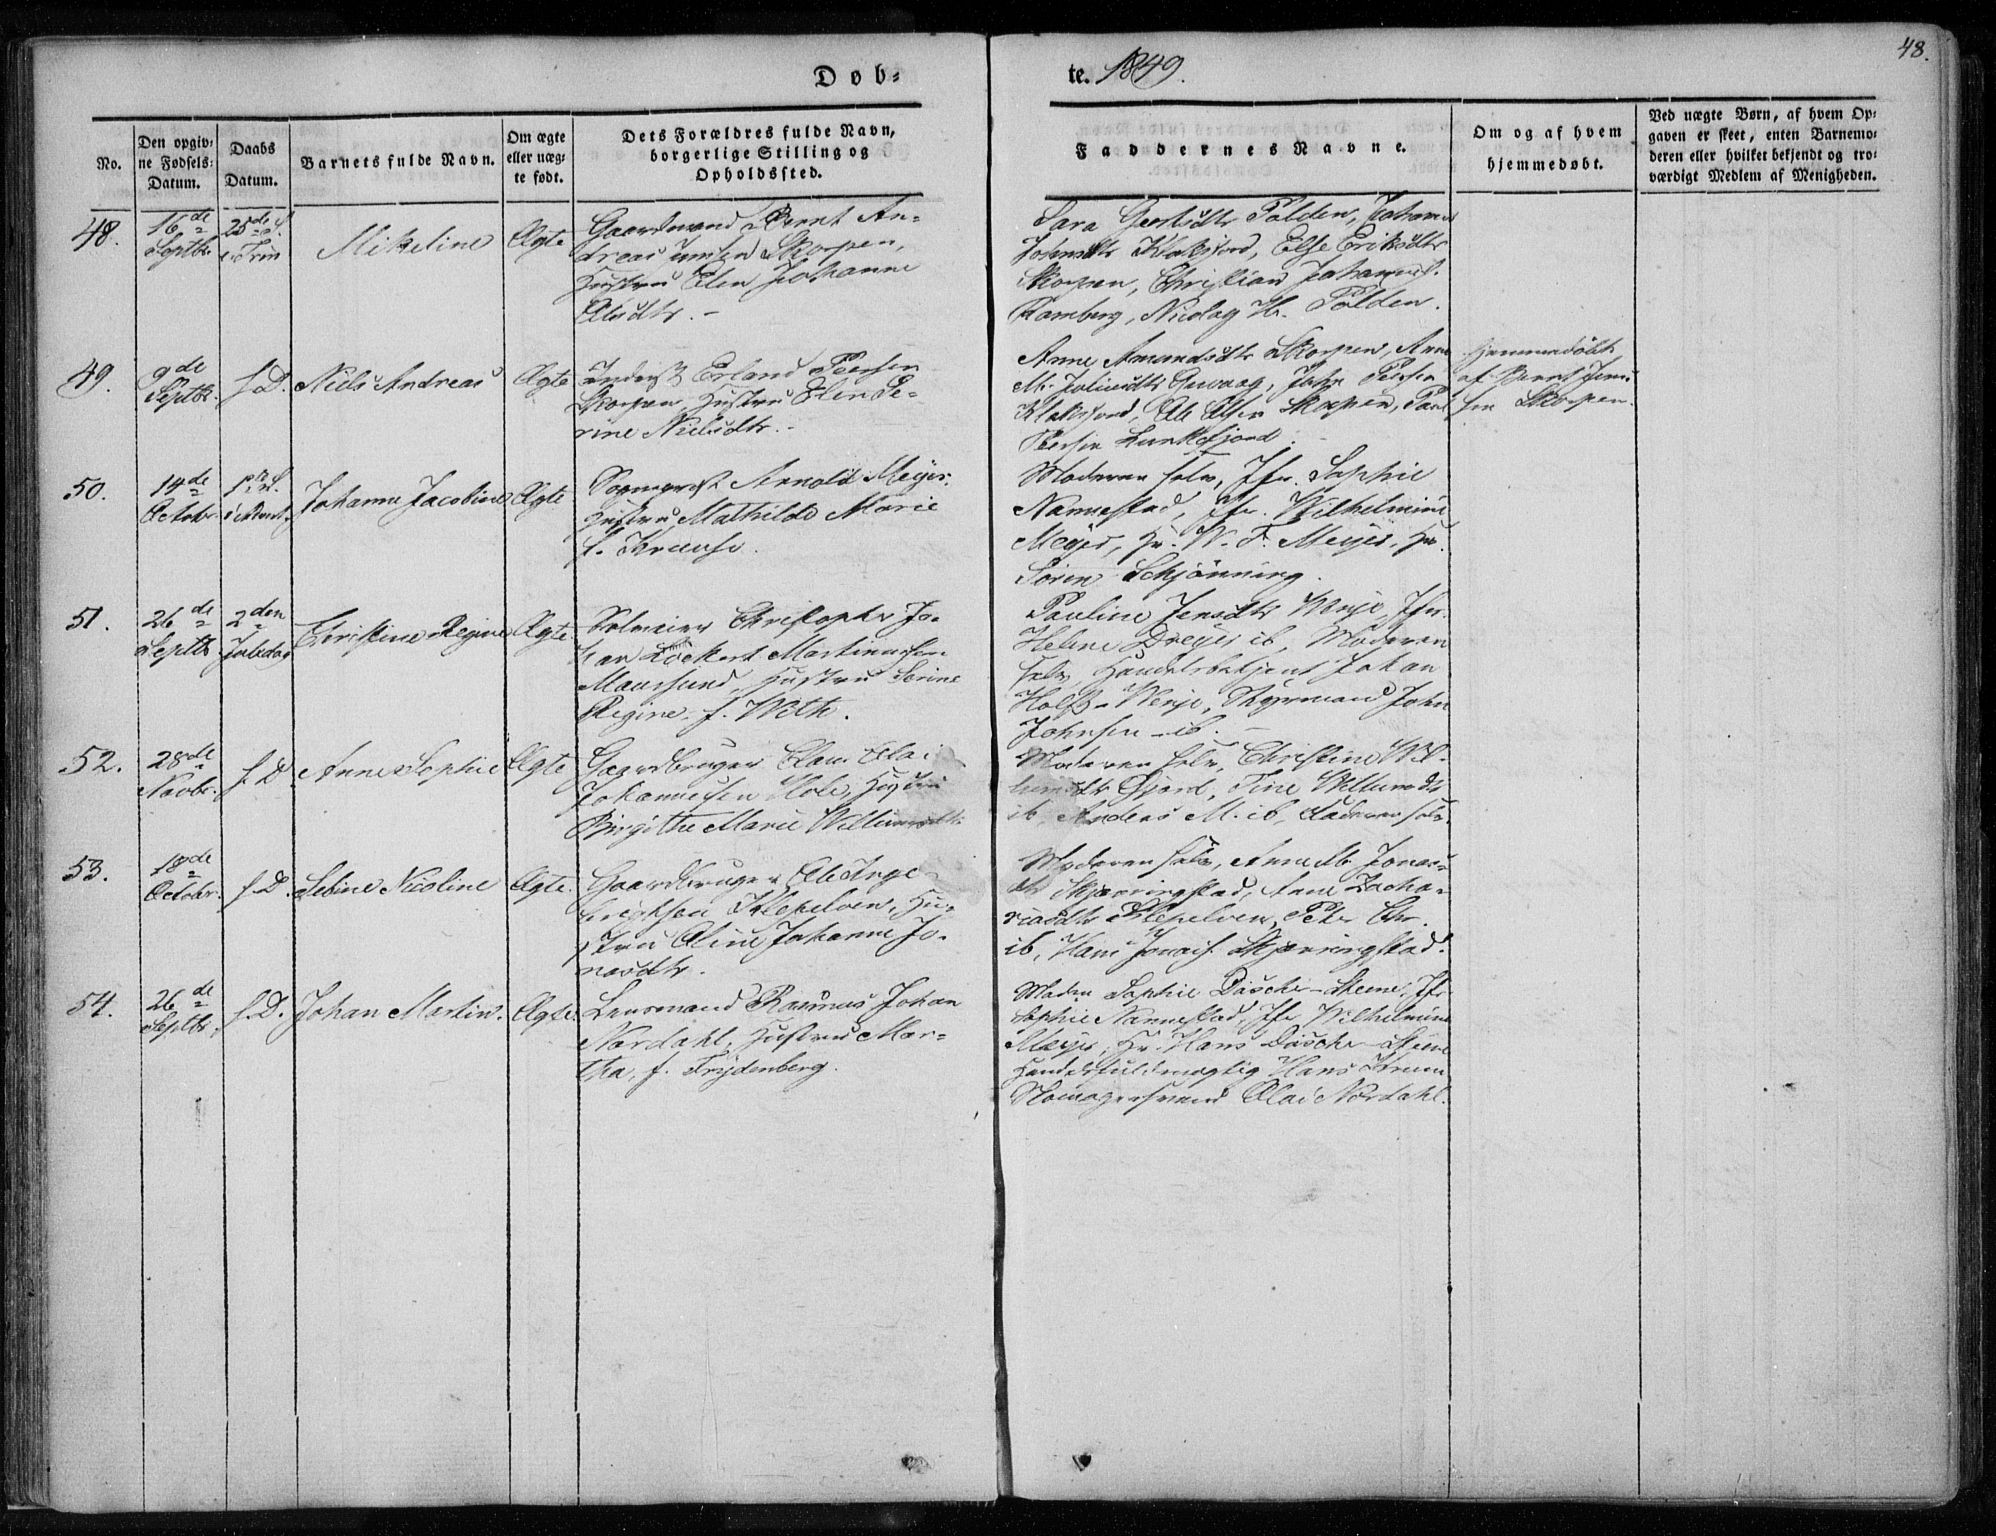 Døb=
te. 1849.
48.
No.
Den opgiv=
ne Fødsels=
Datum.
Daabs
Datum.
Barnets fulde Navn.
Om ægte
eller uæg=
te født.
Dets Forældres fulde Navn,
borgerlige Stilling og
Opholdssted.
Faddernes Navne.
Om og af hvem
hjemmedøbt.
Ved uægte Børn, af hvem Op=
gaven er skeet, enten Barnemo=
deren eller hvilket bekjendt og tro=
værdigt Medlem af Menigheden.
48.
16de
Septbr.
25de S.
e. Trin
Mikeline
Ægte
Gaardmand Bernt An=
dreas Jensen Skorpen,
Hustru Elen Johanne
Olesdtr. -
Sara Gertsdtr Polden, Johanna
Johnsdtr Klaksjord, Else Eriksdtr
Skorpen, Christian Johannes.
Ramberg, Nicolay H. Polden.
49.
9de
Septbr.
s.D.
Niels Andreas
Ægte
Inderst Erland Peersen
Skorpen Hustru Elen Pe=
rine Nielsdtr. -
Anne Amundsdtr Skorpen, Anne
M. Johnsdtr, John Peersen
Klaksjord, Ole Olsen Skorpen, Paul
Peersen Lunkefjord.
Hjemmedøbt
af Bernt Jen=
sen Skorpen.
50.
14de
Octobr.
1ste S.
i Advent.
Johanna Jacobine
Ægte
Sogneprest Arnold Meyer.
Hustru Mathilde Marie
f. Krause.
Moderen selv, Jfr. Sophie
Nannestad, Jfr. Wilhelmine
Meyer, Hr. W. F. Meyer, Hr.
Sören Schjönning.
51.
26de
Septbr
2den
Juledag
Christine Regine
Ægte
Christopher Jo=
han Lockert Martinussen
Maursund, Hustru Sorine
Regine f. With.
Pauline Jensdtr Havn, Jfr.
Helene Dreyer ib, Moderen
selv, Handelsbetjent Johan
Holst, John
Johnsen - ib. -
52.
28de
Novbr.
s.D.
Anne Sophie
Ægte
Gaardbruger Olaus Olai
Johannesen Hole, Hustru
Birgithe Marie Willumsdtr.
Moderen selv, Christine Wil=
lumsdtr Gjord, Tine Willumsdtr
ib, Anders M. ib, Faderen selv.
53.
18de
Octobr.
s.D.
Sebine Nicoline
Ægte.
Gaardbruger Ole Inge=
brigtsen Klepelven, Hu=
stru Oline Johanne Jo=
nasdtr.
Moderen selv, Anne M. Jonas=
dtr Skjerringstad, Anne Zacha=
riasdtr Klepelven, Peter Chr.
ib, Hans Jonais. Skjerringstad.
54.
26de
Septbr.
s.D.
Johan Martin.
Ægte.
Lensmand Rasmus Johan
Nordahl, Hustru Mar=
tha, f. Frydenberg.
Madm Sophie Däscher - Steene, Jfr
Sophie Nannestad, Jfr Wilhelmine
Meyer, Hr. Hans Däscher - Steene
Handelsfuldmægtig Hans
Skomagersvend Olai Nordahl.